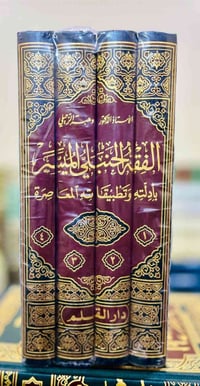 الأستاذ الدكتور وهبة الزحيلي
الفقه الحنبلي الميسر
بأدلته وتطبيقاته المعاصرة
١ ٢ ٣ ٤
دار القلم